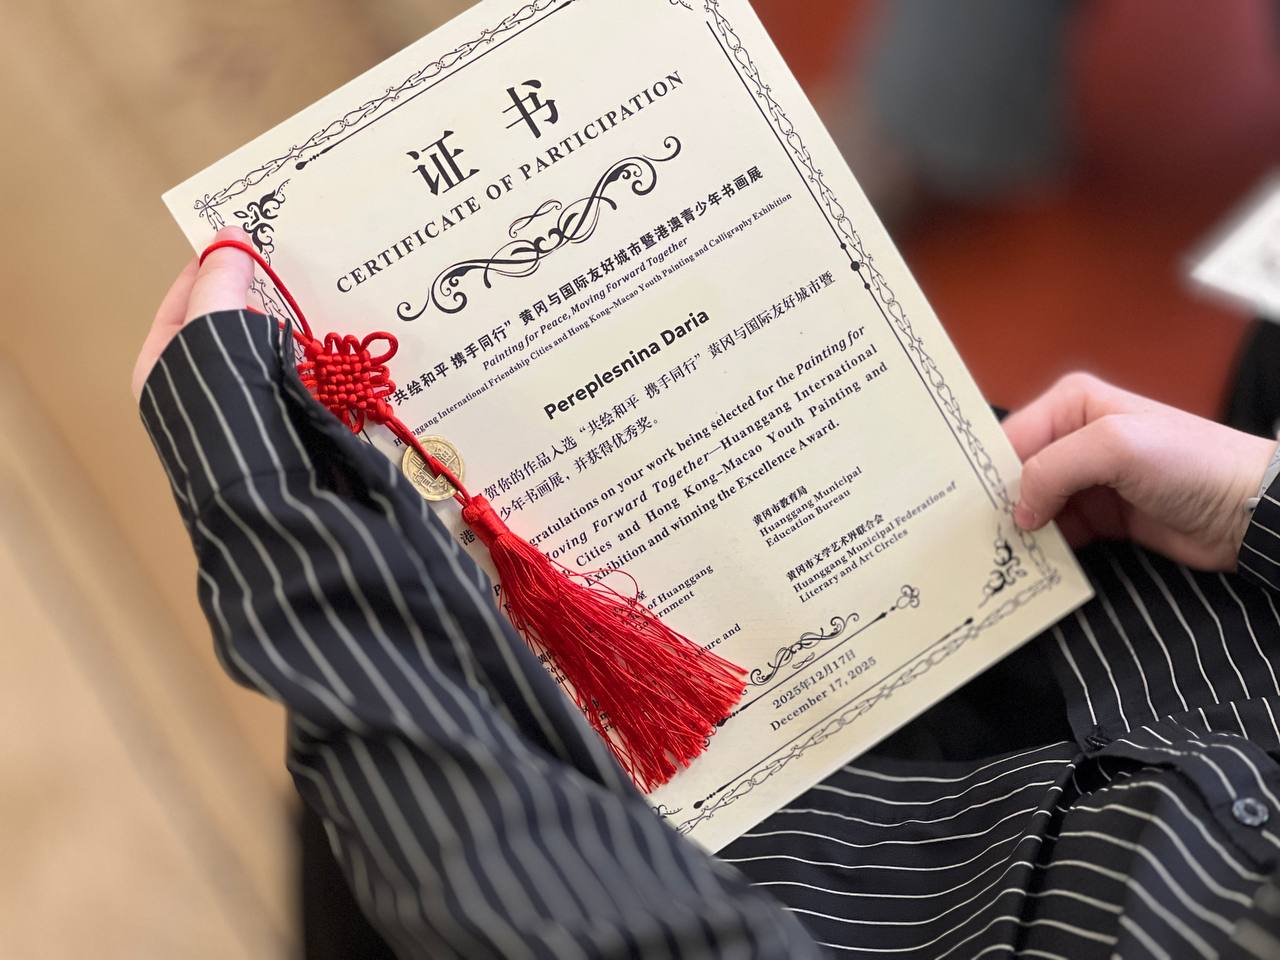 证 书
CERTIFICATE OF PARTICIPATION
“共绘和平 携手同行” 黄冈与国际友好城市暨港澳青少年书画展
Painting for Peace, Moving Forward Together
Huanggang International Friendship Cities and Hong Kong–Macao Youth Painting and Calligraphy Exhibition
Pereplesnina Daria
贺你的作品入选 “共绘和平 携手同行” 黄冈与国际友好城市暨
港 少年书画展，并获得优秀奖。
on your work being selected for the Painting for
Moving Forward Together—Huanggang International
Cities and Hong Kong–Macao Youth Painting and
Exhibition and winning the Excellence Award.
黄冈市教育局
Huanggang Municipal
Education Bureau
of Huanggang
黄冈市文学艺术界联合会
Huanggang Municipal Federation of
Literary and Art Circles
and
2025年12月17日
December 17, 2025